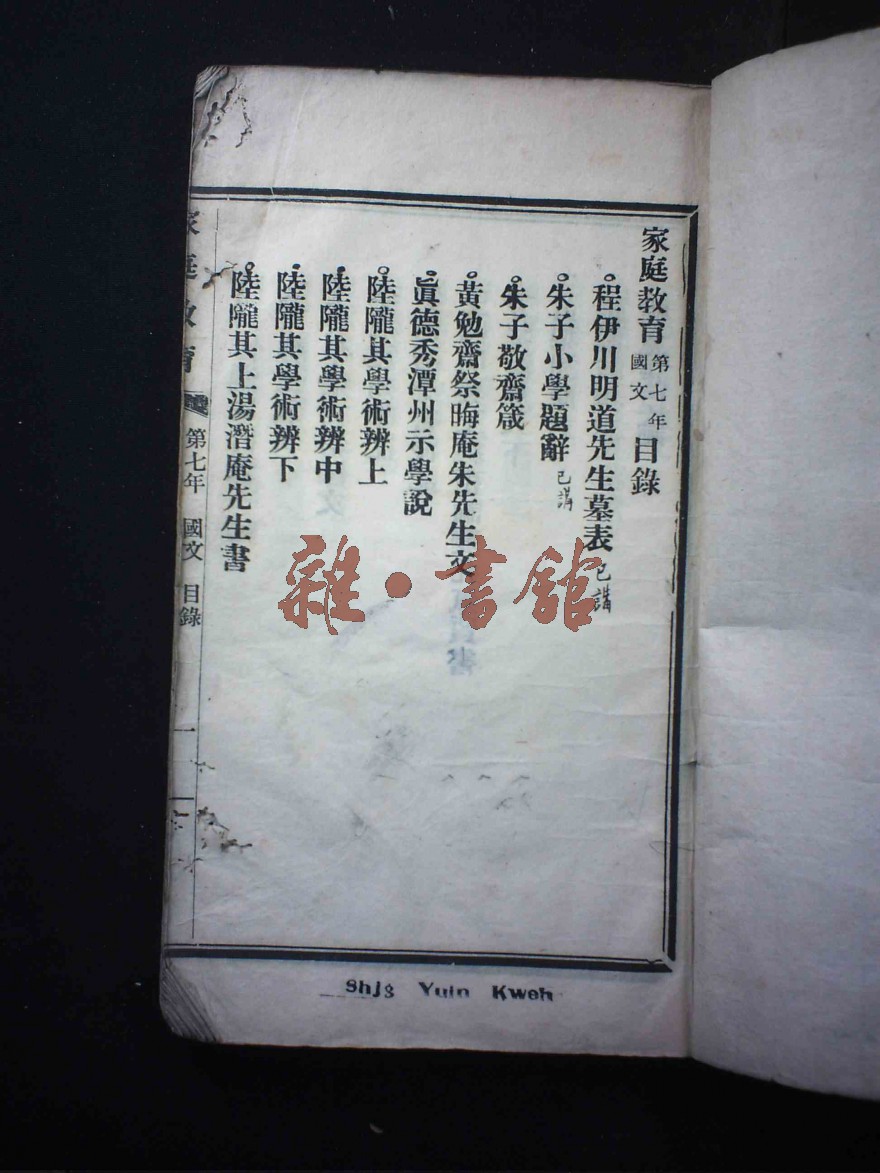 家庭教育 第七年 國文 目錄
程伊川明道先生墓表 已講
朱子小學題辭 已講
朱子敬齋箴
黃勉齋祭晦庵朱先生文
眞德秀潭州示學說
陸隴其學術辨上
陸隴其學術辨中
陸隴其學術辨下
陸隴其上湯潛庵先生書
家庭教育 第七年 國文 目錄 一
雜·書館
Shjg Yuin Kweh